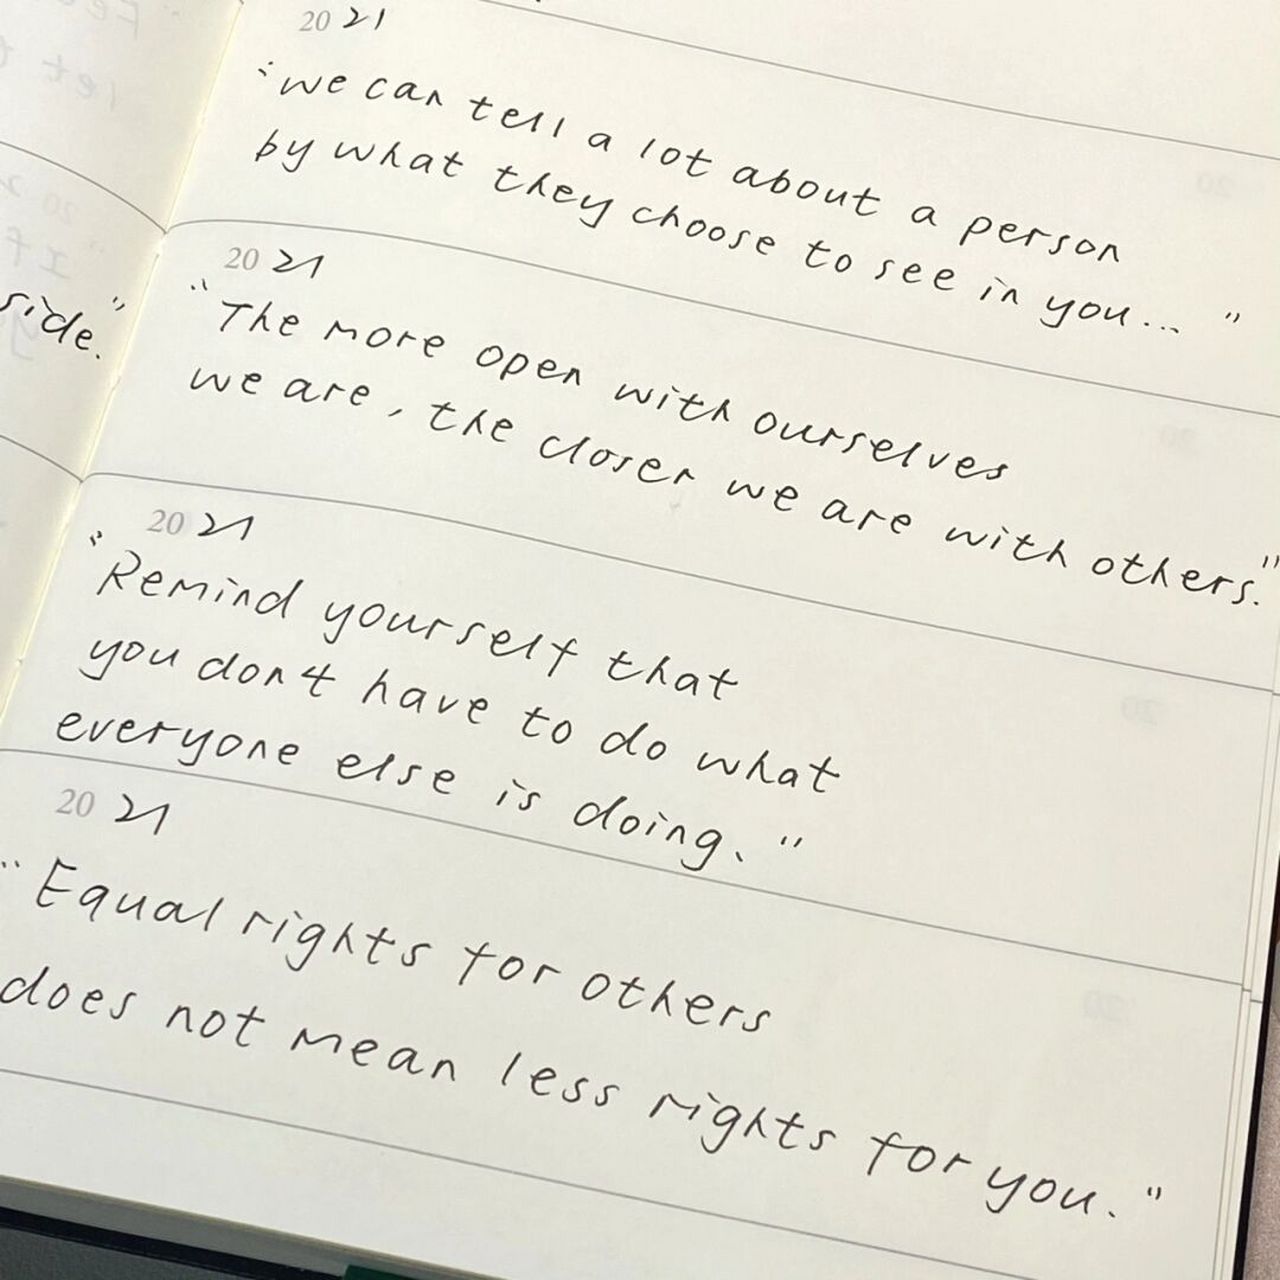 side."
20 21
"we can tell a lot about a person
by what they choose to see in you... "
20 21
"The more open with ourselves
we are, the closer we are with others."
20 21
"Remind yourself that
you don't have to do what
everyone else is doing."
20 21
"Equal rights for others
does not mean less rights for you."